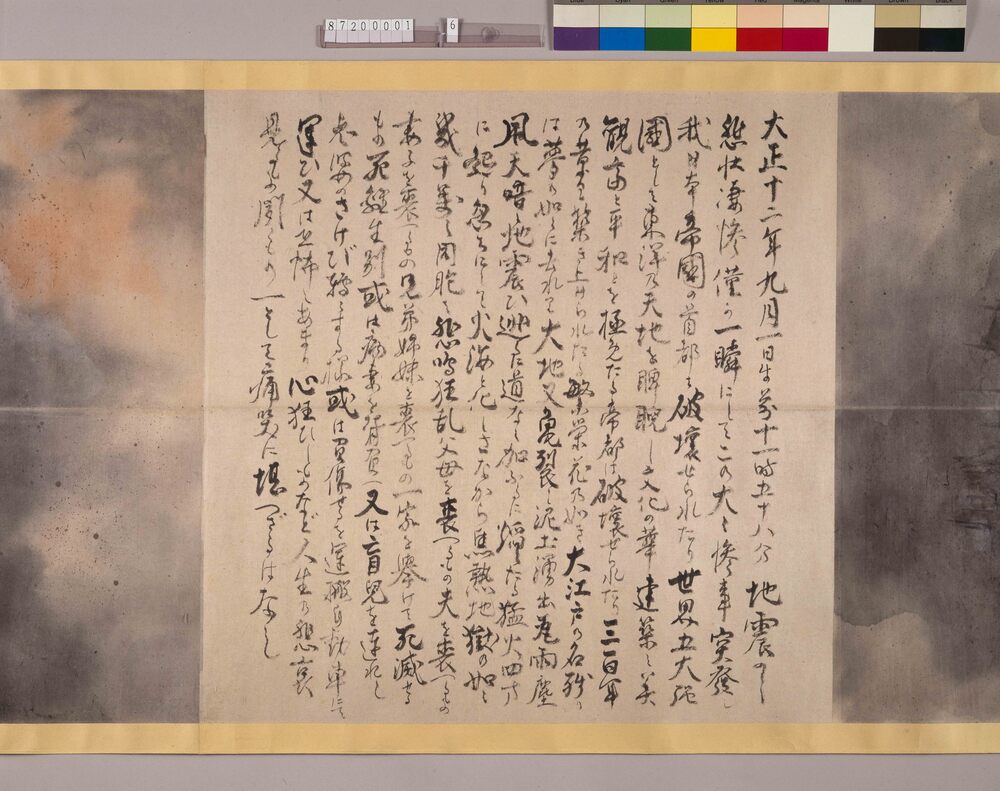 87200001 6
Blue Cyan Green Yellow Red Magenta White Brown Black
大正十二年九月一日午前十一時五十八分 地震の
惨状凄惨僅か一瞬にしてこの大々惨事突発し
我日本帝國の首都は破壊せられたり世界五大強
國として東洋の天地を睥睨し文化の華建築と美
観守と平和とを極めたる帝都は破壊せられたり三百年
の昔より築き上げられたる繁栄花の如き大江戸の名残り
は夢の如くに去れり大地又亀裂し泥土湧出
風天暗く地震ひ逃るに道なく加ふるに猛火四方
に起り忽ちにして火海と化しさながら焦熱地獄の如し
幾千萬の同胞は悲鳴狂乱父母を喪へるもの夫を喪へるもの
妻子を喪へるもの兄弟姉妹を喪へるもの一家を挙げて死滅せる
もの死離生別或は病妻を背負ひ又は盲児を連れし
老婆のさけび 或は負傷せるを運搬自動車にて
運び又は恐怖のあまり心狂ひしものなど人生の悲哀
見るもの聞くもの一として痛哭に堪へざるはなし